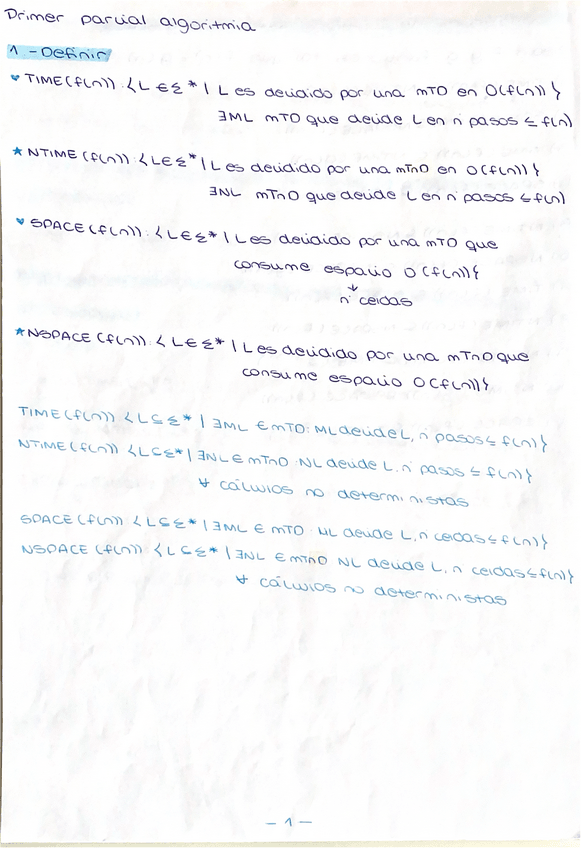 Primer parcial algoritmia
1.-Definir
TIME(f(n)): {L ∈ Σ* | L es decidido por una mTD en O(f(n))}
∃ML mTD que decide L en nº pasos ≤ f(n)
★ NTIME(f(n)): {L∈Σ* | L es decidido por una mTnD en O(f(n))}
∃NL mTnD que decide L en nº pasos ≤ f(n)
SPACE(f(n)): {L∈Σ* | L es decidido por una mTD que
consume espacio O(f(n))}
↓
nº celdas
★ NSPACE(f(n)): {L∈Σ* | L es decidido por una mTnD que
consume espacio O(f(n))}
TIME(f(n)) {L⊆Σ* | ∃ML ∈ mTD: ML decide L, nº pasos ≤ f(n)}
NTIME(f(n)) {L⊆Σ* | ∃NL ∈ mTnD: NL decide L, nº pasos ≤ f(n)}
∀ cálculos no deterministas
SPACE(f(n)): {L⊆Σ* | ∃ML ∈ mTD: ML decide L, n celdas ≤ f(n)}
NSPACE(f(n)): {L⊆Σ* | ∃NL ∈ mTnD NL decide L, n celdas ≤ f(n)}
∀ cálculos no deterministas
- 1 -